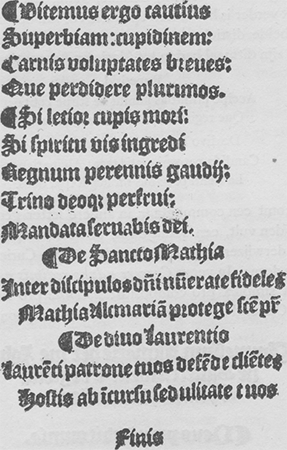 ¶Vitemus ergo cautius
Superbiam: cupidinem:
Carnis voluptates breues:
Que perdidere plurimos.
¶Si letior cupis mori:
Si spiritu vis ingredi
Regnum perennis gaudij:
Trino deoqꝫ perfrui:
Mandata seruabis dei.
¶De Sancto Mathia
Inter discipulos dñi nũerate fideles
Mathia Alcmariã protege scẽ pr̃
¶De diuo Laurentio
Laurẽti patrone tuos defẽde cliẽtes
Hostis ab ĩcursu sedulitate tuos
Finis